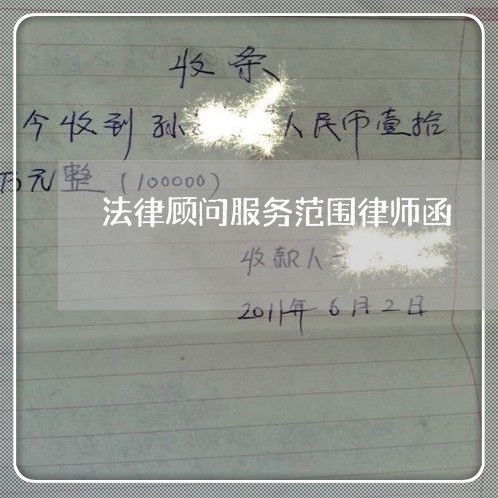 收条
今收到孙 人民币壹拾
万元整（100000）
法律顾问服务范围律师函
收款人
2011年6月2日